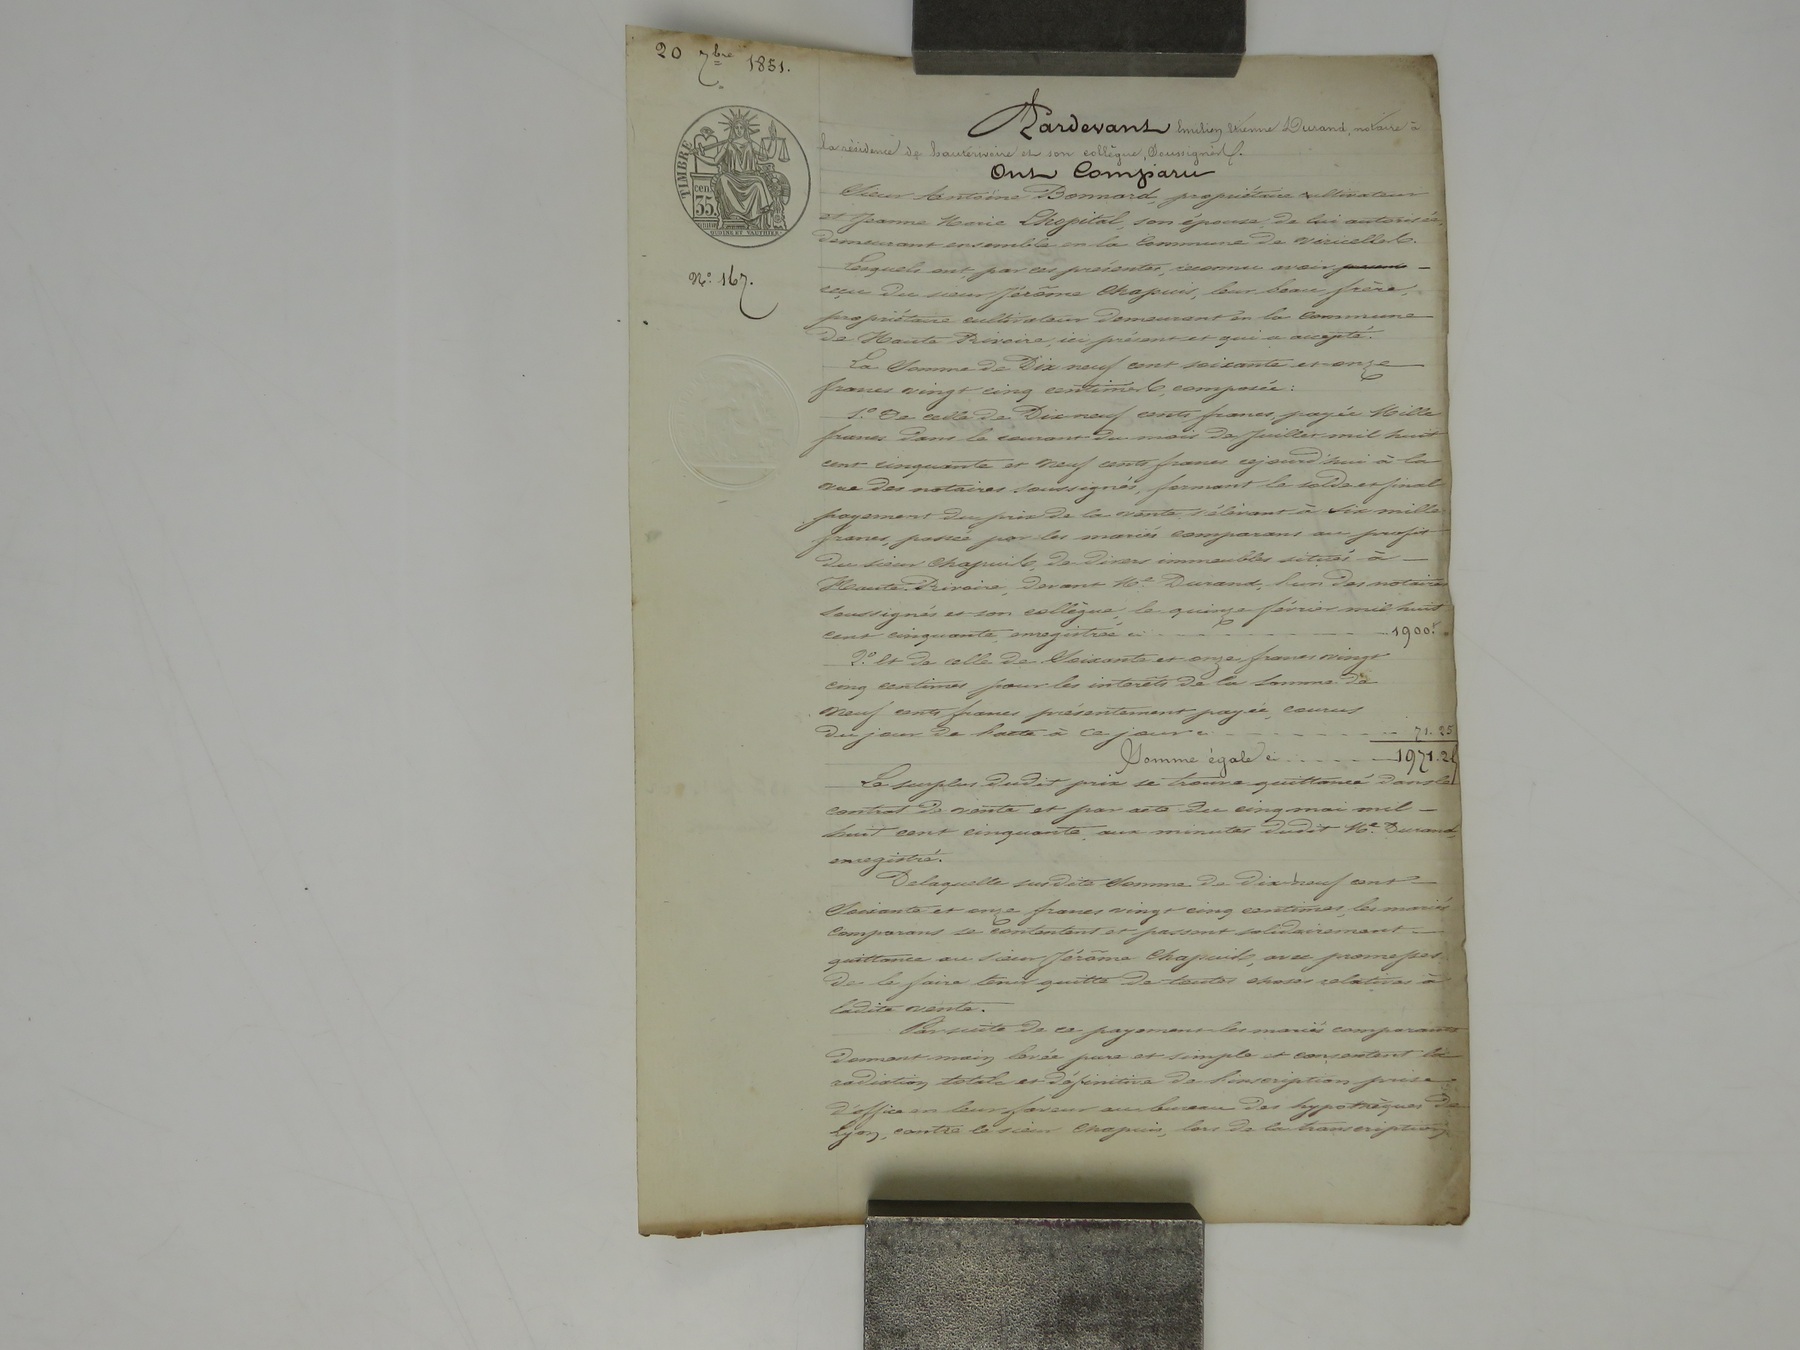 20 7bre 1851.
TIMBRE
cen.
35
OUDINE ET VAUTHIER
N.o 167.
Pardevant Emilien Etienne Durand, notaire à
la résidence de hauterivoire et son collègue, Soussignés.
Ont Comparu
Sieur Antoine Bonnard, propriétaire cultivateur
et Jeanne Marie Lhopital, son épouse, de lui autorisée,
demeurant ensemble en la Commune de viricelles.
Lesquels ont, par ces présentes, reconnu avoir
reçu du sieur Jérôme Chapuis, leur beau frère,
propriétaire cultivateur demeurant en la Commune
de Haute Rivoire, ici présent et qui a accepté.
La Somme de Dix neuf cent soixante et onze
francs vingt cinq centimes, composée :
1.o De celle de Dix neuf cents francs, payée Mille
francs dans le courant du mois de Juillet mil huit
cent cinquante et neuf cents francs cejourd'hui à la
vue des notaires soussignés, formant le solde et final
payement du prix de la vente, s'élevant à Six mille
francs, passée par les mariés comparans au profit
du sieur Chapuis, de divers immeubles situés à
Haute-Rivoire, devant Me Durand, l'un des notaires
soussignés et son collègue, le quinze février mil huit
cent cinquante, enregistrée ci 1900.f
2.o Et de celle de Soixante et onze francs vingt
cinq centimes pour les intérêts de la somme de
neuf cents francs présentement payée, courus
du jour de l'acte à ce jour ci 71.25
Somme égale ci 1971.25
Le surplus dudit prix se trouve quittancé dans le
contrat de vente et par acte du cinq mai mil
huit cent cinquante, aux minutes dudit Me Durand,
enregistré.
Delaquelle susdite Somme de dix neuf cent
Soixante et onze francs vingt cinq centimes, les mariés
comparans se contentent et passent solidairement
quittance au sieur Jérôme Chapuis, avec promesses
de le faire tenir quitte de toutes choses relatives à
ladite vente.
Par suite de ce payement les mariés comparants
donnent main levée pure et simple et consentent la
radiation totale et définitive de l'inscription prise
d'office en leur faveur au bureau des hypothèques de
Lyon, contre le sieur Chapuis, lors de la transcription